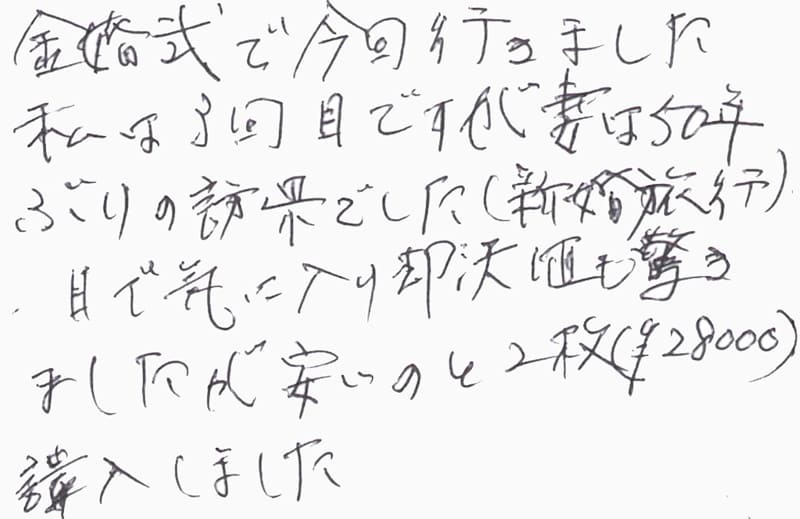 金婚式で今回行きました
私は3回目ですが妻は50年
ぶりの訪県でした(新婚旅行)
目で気に入り却決値も驚き
ましたが安いのと2枚(¥28000)
講入しました